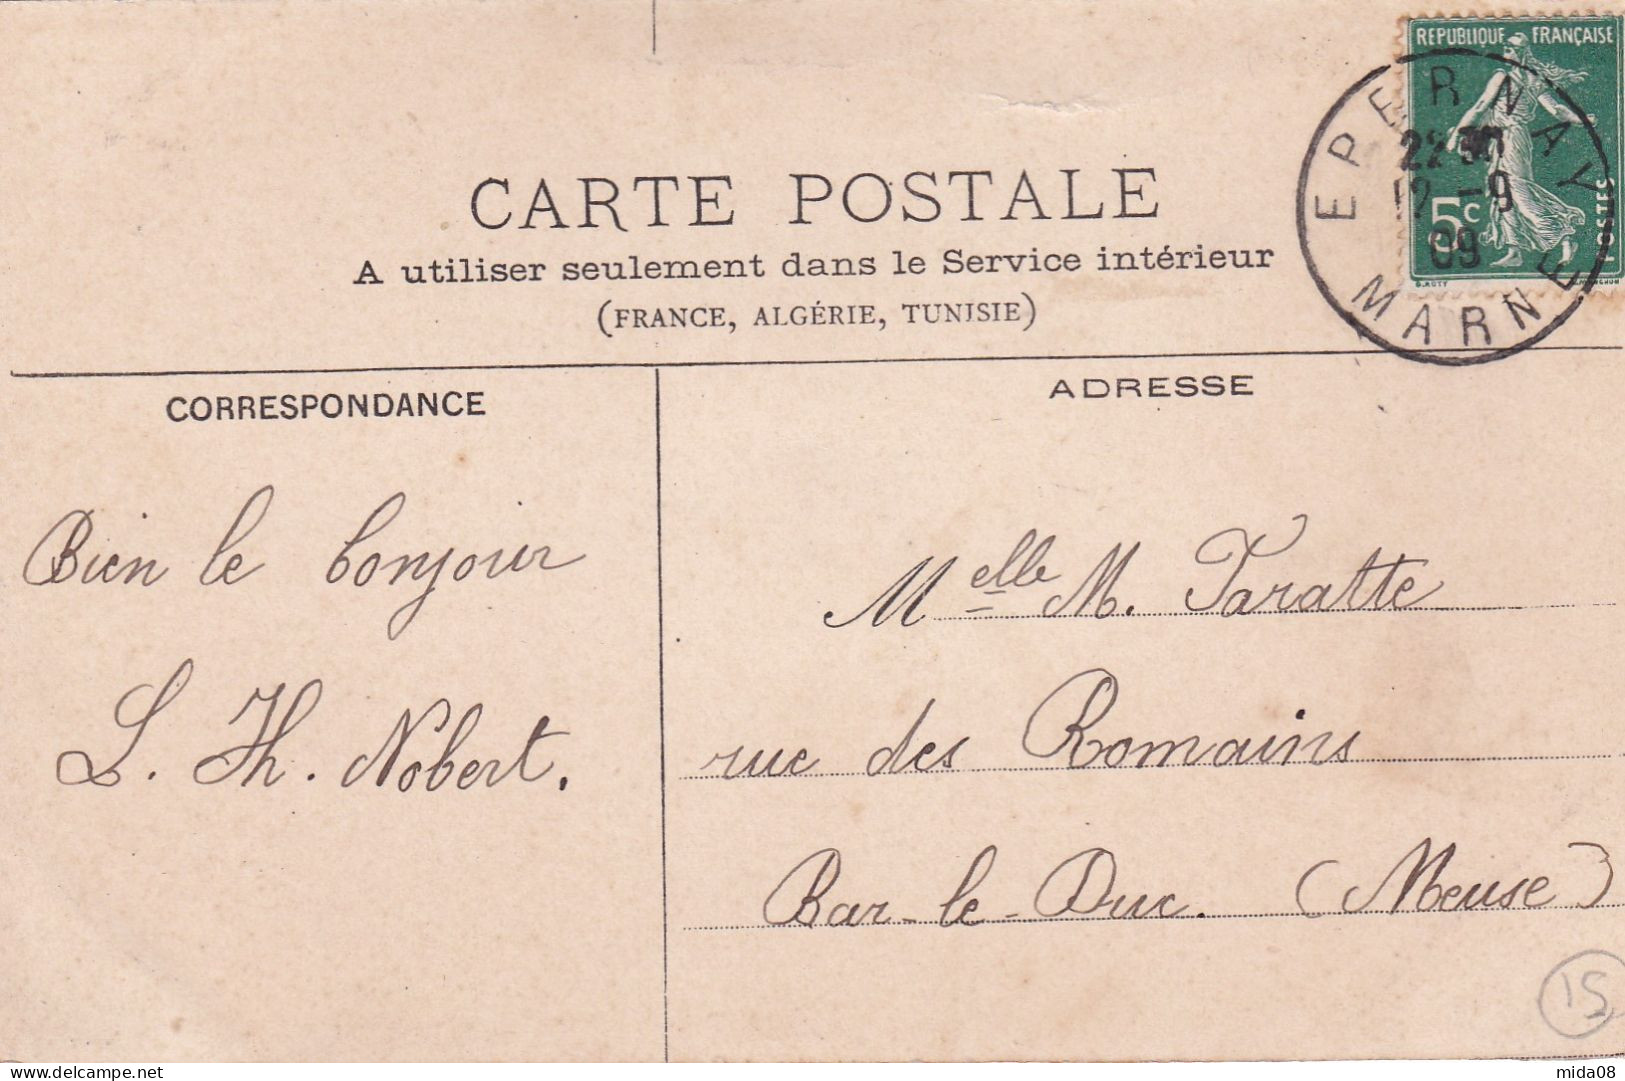 REPUBLIQUE FRANÇAISE
5c
POSTES
O.ROTY
EPERNAY
22 30
12 -9
09
MARNE
CARTE POSTALE
A utiliser seulement dans le Service intérieur
(FRANCE, ALGÉRIE, TUNISIE)
CORRESPONDANCE
ADRESSE
Bien le bonjour
L. Th. Nobert.
Melle M. Taratte
rue des Romains
Bar-le-Duc. (Meuse)
15
delcampe.net
mida08